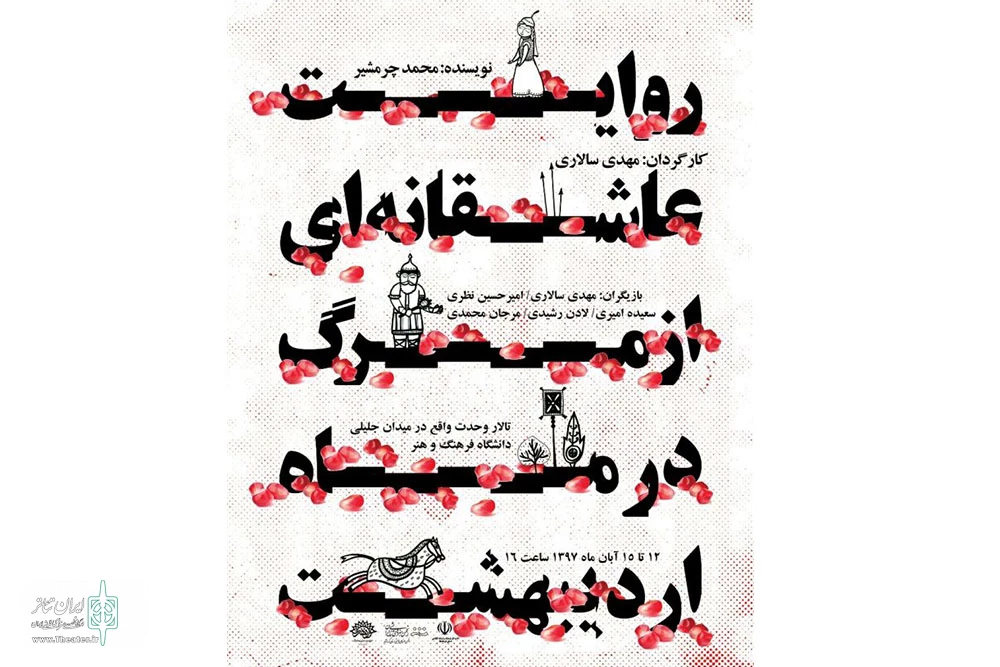 نویسنده: محمد چرمشیر
روایت
کارگردان: مهدی سالاری
عاشقانه‌ای
بازیگران: مهدی سالاری/ امیرحسین نظری
سعیده امیری/ لادن رشیدی/ مرجان محمدی
از مرگ
تالار وحدت واقع در میدان جلیلی
دانشگاه فرهنگ و هنر
در ماه
۱۲ تا ۱۵ آبان ماه ۱۳۹۷ ساعت ۱۶
اردیبهشت
ایران تئاتر
www.Theater.ir